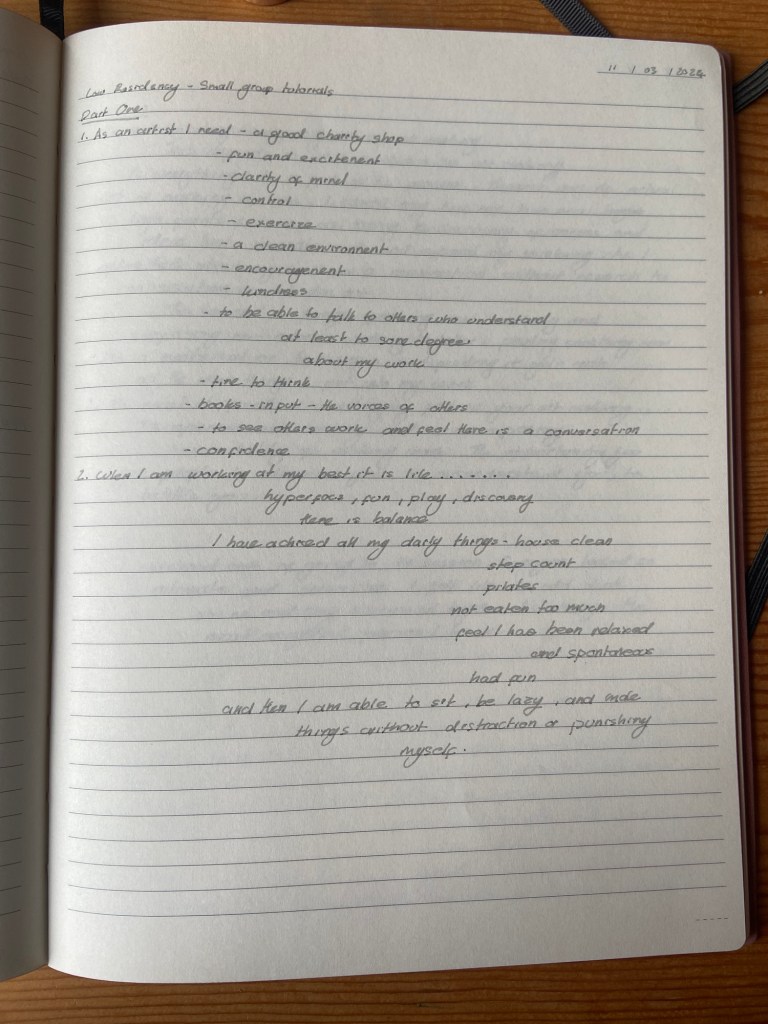 11 / 03 / 2024
Low Residency - Small group tutorials
Part One
1. As an artist I need - a good charity shop
- fun and excitement
- clarity of mind
- control
- exercise
- a clean environment
- encouragement
- kindness
- to be able to talk to others who understand
at least to some degree
about my work
- time to think
- books - input - the voices of others
- to see others work and feel there is a conversation
- confidence
2. When I am working at my best it is like .......
hyperfocus, fun, play, discovery
there is balance
I have achieved all my daily things - house clean
step count
pilates
not eaten too much
feel I has been relaxed
and spontaneous
had fun
and then I am able to sit, be lazy, and make
things without distraction or punishing
myself.